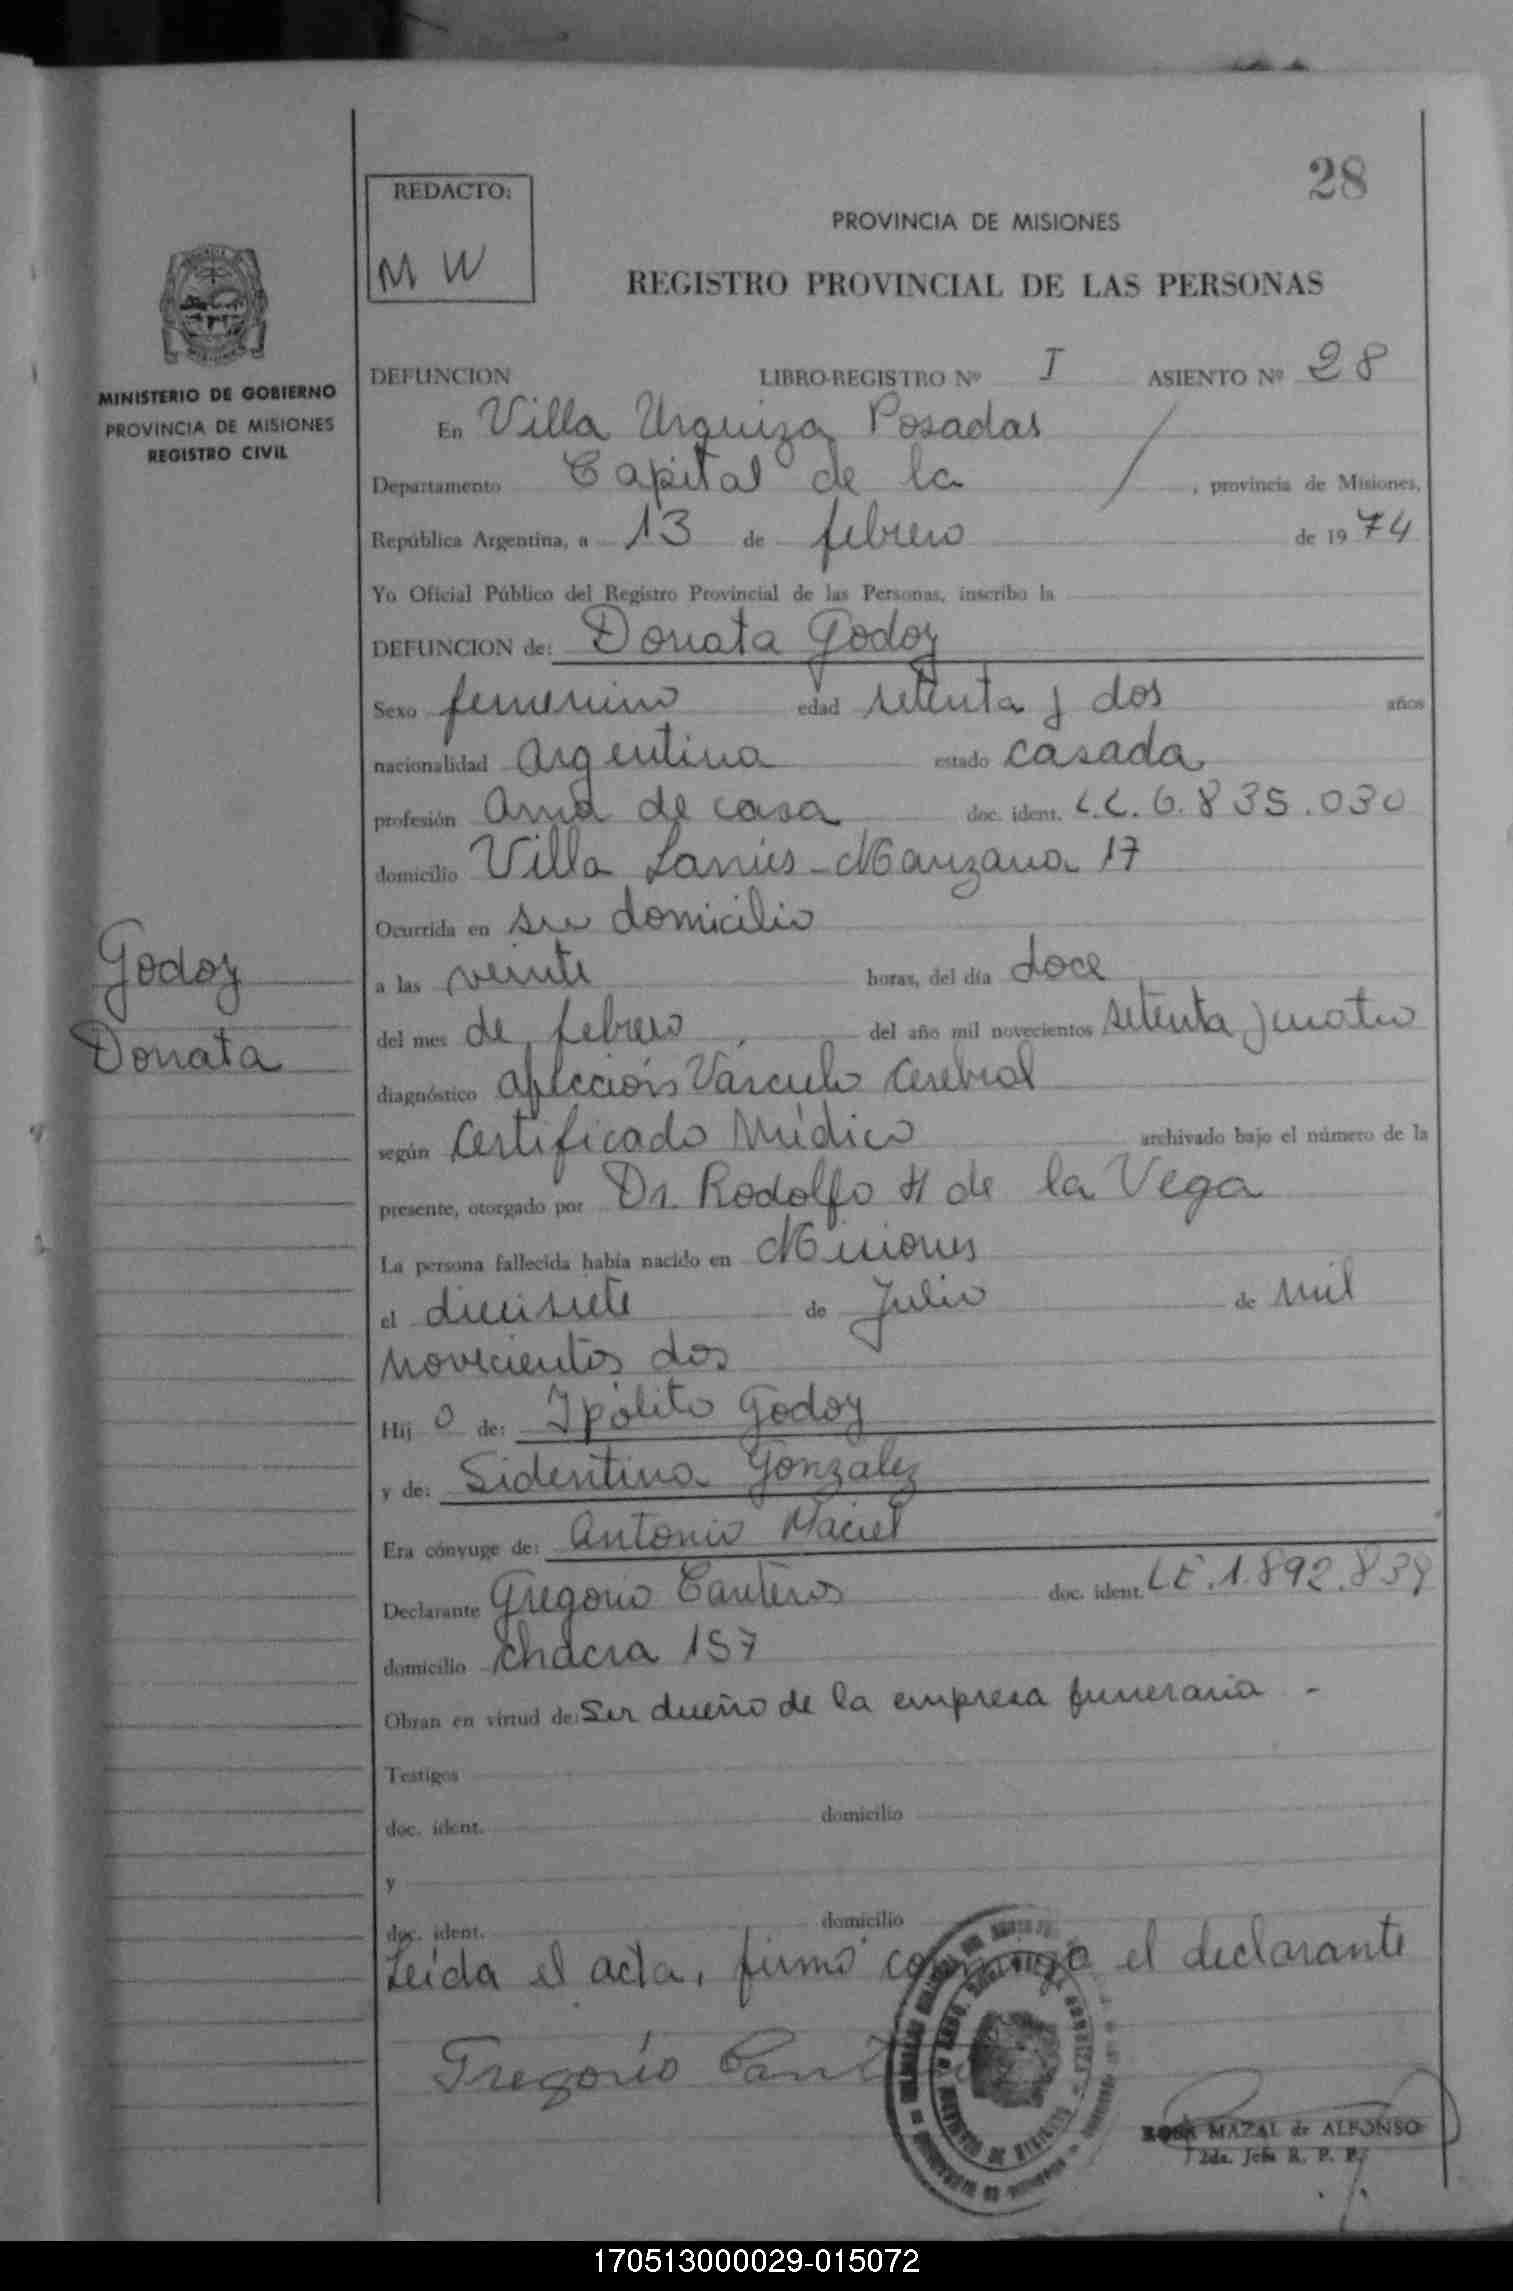 28
REDACTO:
M W
PROVINCIA DE MISIONES
REGISTRO PROVINCIAL DE LAS PERSONAS
MINISTERIO DE GOBIERNO
PROVINCIA DE MISIONES
REGISTRO CIVIL
DEFUNCION LIBRO-REGISTRO Nº I ASIENTO Nº 28
En Villa Urquiza Posadas
Departamento Capital de la , provincia de Misiones,
República Argentina, a 13 de febrero de 1974
Yo Oficial Público del Registro Provincial de las Personas, inscribo la
DEFUNCION de: Donata Godoy
Sexo femenino edad setenta y dos años
nacionalidad argentina estado casada
profesión ama de casa doc. ident. L.C. 6.835.030
domicilio Villa Lanús - Manzana 17
Ocurrida en su domicilio
a las veinte horas, del día doce
del mes de febrero del año mil novecientos setenta y cuatro
diagnóstico afección Vásculo Cerebral
según Certificado Médico archivado bajo el número de la
presente, otorgado por Dr. Rodolfo H de la Vega
La persona fallecida había nacido en Misiones
el diecisiete de Julio de mil
novecientos dos
Hij o de: Ipólito Godoy
y de: Sidentina Gonzalez
Era cónyuge de: Antonio Maciel
Declarante Gregorio Canteros doc. ident. LE.1.892.839
domicilio chacra 157
Obran en virtud de: Ser dueño de la empresa funeraria -
Testigos
doc. ident. domicilio
y
doc. ident. domicilio
Leída el acta, firmó conmigo el declarante
Gregorio
ROSA MAZAL de ALFONSO
2da. Jefe R. P. P.
Godoy
Donata
170513000029-015072